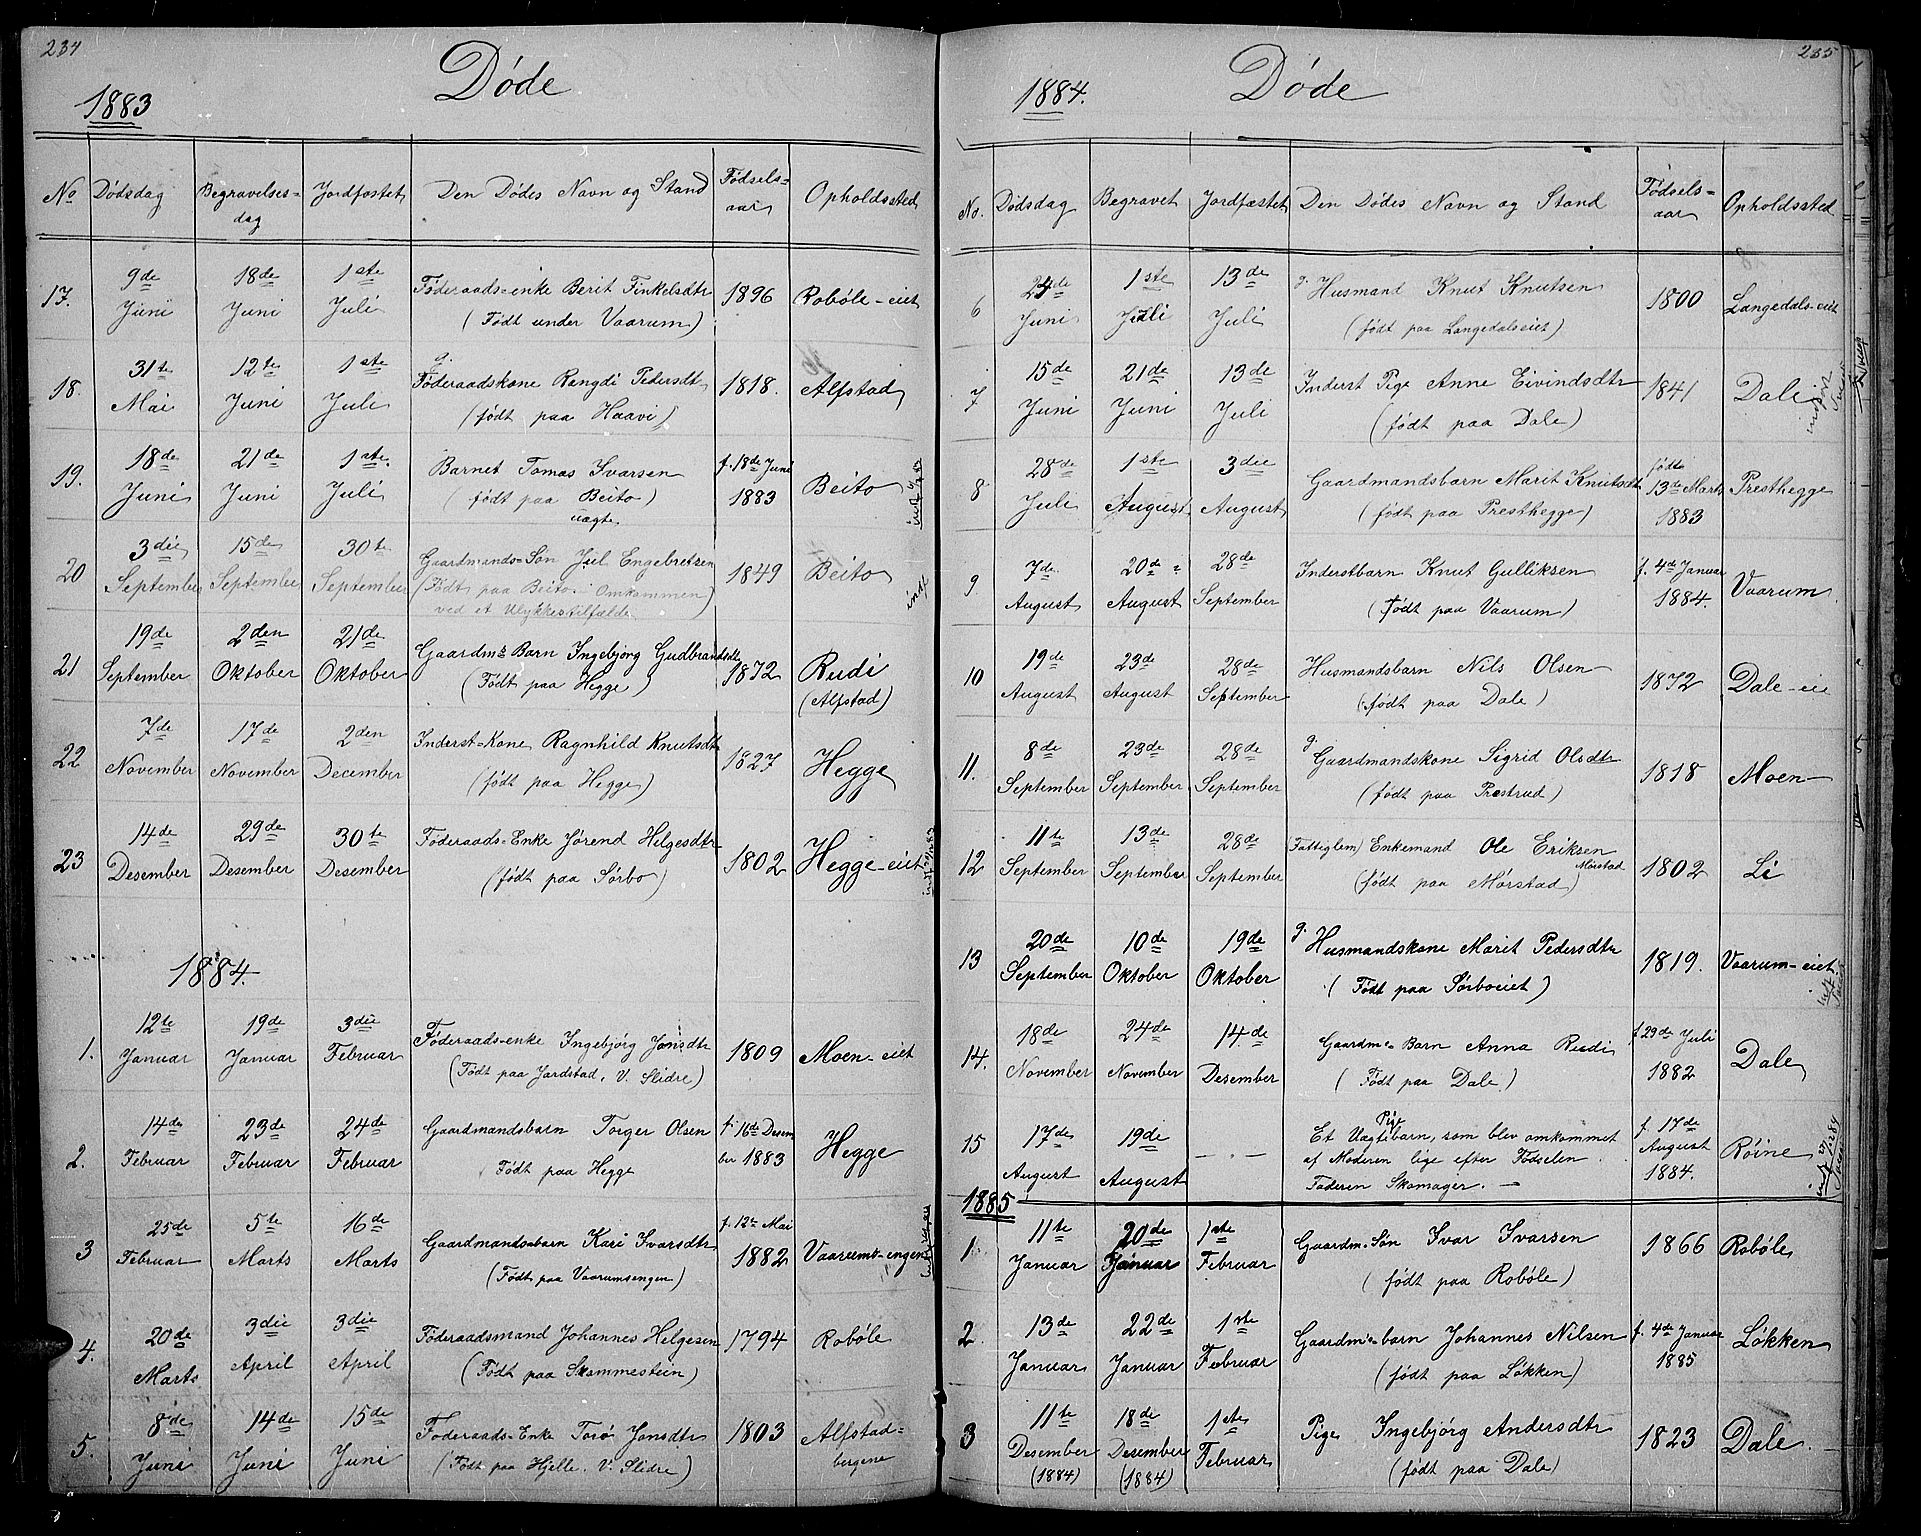 234
Døde
1883
No Dødsdag Begravelses= dag Jordfæstet Den Dødes Navn og Stand Fødsels= aar Opholdssted
17. 9de Juni 18de Juni 1ste Juli Føderaads=enke Berit Finkelsdtr 1896 Robøle-eiet
(Født under Vaarum)
18. 31te Mai 12te Juni 1ste Juli g. Føderaadskone Rangdi Pedersdtr 1818. Alfstad
(født paa Haavi)
19. 18de Juni 21de Juni 1ste Juli Barnet Tomas Ivarsen f. 18de Juni 1883 Beito
(født paa Beito)
uægte.
20 3die September 15de September 30te September Gaardmands=Søn Jul Engebretsen 1849 Beito
(Født paa Beito. Omkommen)
ved et Ulykkestilfælde
21 19de September 2den Oktober 21de Oktober Gaardms Barn Ingebjørg Gudbrandsdtr 1872 Rudi
(Født paa Hegge) (Alfstad)
22 7de November 17de November 2den December Inderst=Kone Ragnhild Knutsdtr 1827 Hegge
(født paa Hegge)
23 14de Desember 29de Desember 30te Desember Føderaads=Enke Jørend Helgesdtr 1802 Hegge-eiet
(født paa Sørbo)
1884.
1. 12te Januar 19de Januar 3die Februar Føderaads=enke Ingebjørg Jonsdtr 1809 Moen-eiet
(Født paa Jardstad, V. Slidre)
2. 14de Februar 23de Februar 24de Februar Gaardmandsbarn Torger Olsen f. 16de Desember 1883 Hegge
Født paa Hegge
3 25de Februar 5te Marts 16de Marts Gaardmandsbarn Kari Ivarsdtr f. 12te Mai 1882 Vaarums-engen
(Født paa Vaarumsengen)
4. 20de Marts 3die April 3die April Føderaadsmand Johannes Helgesen 1794 Robøle
(Født paa Skammestein)
5. 8de Juni 14de Juni 15de Juni Føderaads=Enke Torø Jonsdtr 1803 Alfstad=
(Født paa Hjelle. V. Slidre) bergene
235
1884. Døde
No. Dødsdag Begravet Jordfæstet Den Dødes Navn og Stand Fødsels= aar Opholdssted
6 24de Juni 1ste Juli 13de Juli g. Husmand Knut Knutsen 1800 Langedals-eiet
(født paa Langedalseiet)
7 15de Juni 21de Juni 13de Juli Inderst Pige Anne Eivindsdtr 1841 Dale
(født paa Dale)
8 28de Juli 1ste August 3die August Gaardmandsbarn Marit Knutsdtr født 13de Marts 1883 Presthegge
(født paa Presthegge)
9 7de August 20de August 28de September Inderstbarn Knut Gulliksen f. 4de Januar 1884. Vaarum
(født paa Vaarum)
10 19de August 23de August 28de September Husmandsbarn Nils Olsen 1872 Dale-eie
(født paa Dale)
11. 8de September 23de September 28de September g. Gaardmandskone Sigrid Olsdtr 1818 Moen
(født paa Prestrud)
12 11te September 13de September 28de September (Fattiglem) Enkemand Ole Eriksen Mørstad 1802 Li
(født paa Mørstad)
13 20de September 10de Oktober 19de Oktober g. Husmandskone Marit Pedersdtr 1819. Vaarum-eiet
(Født paa Sørboeiet)
14. 18de November 24de November 14de Desember Gaardms Barn Anna Rudi f. 29de Juli 1882 Dale
(Født paa Dale)
15 17de August 19de August — Et Uægte Pigebarn, som blev omkommet f. 17de August 1884. Røine
af Moderen lige efter Fødselen.
Faderen Skomager. —
1885
1 11te Januar 20de Januar 1ste Februar Gaardm.-Søn Ivar Ivarsen 1866 Robøle
(født paa Robøle)
2 13de Januar 22de Januar 1ste Februar Gaardms barn Johannes Nilsen f. 4de Januar 1885 Løkken
(født paa Løkken)
3 11te Desember (1884) 18de Desember (1884) 1ste Februar Pige Ingebjørg Andersdtr 1823 Dale.
(født paa Dale)